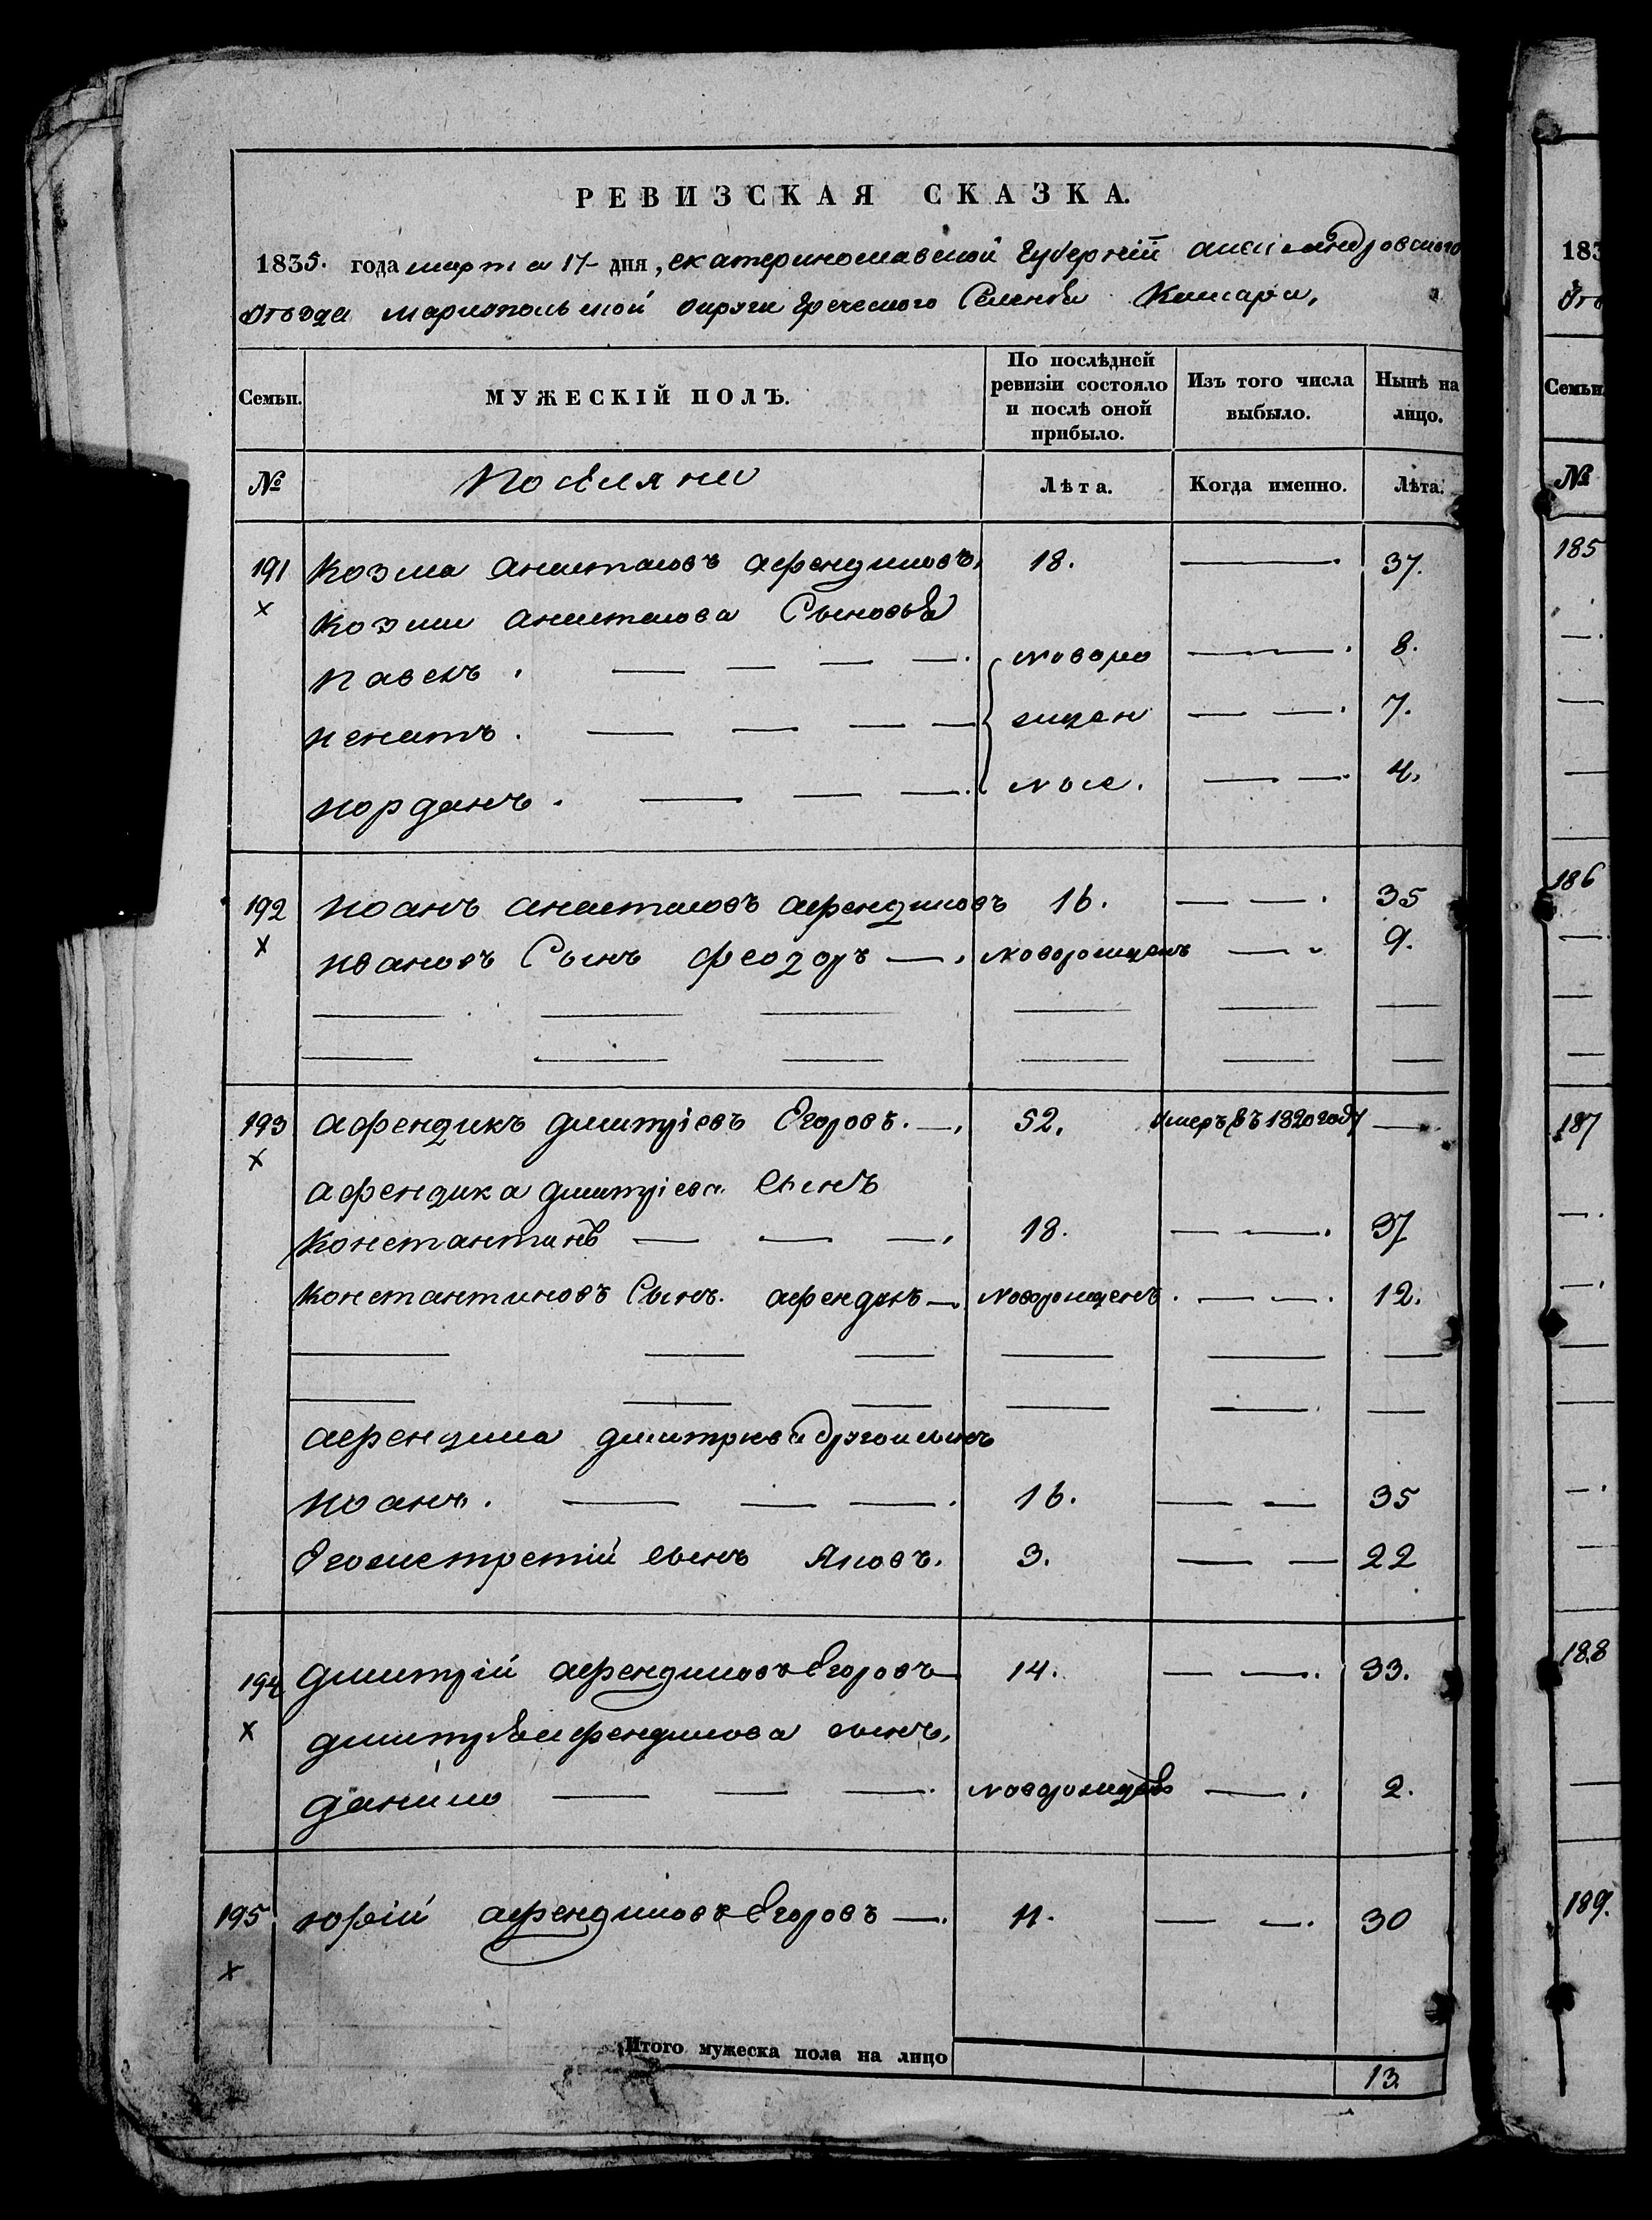 РЕВИЗСКАЯ СКАЗКА.
1835. года марта 17 дня, екатеринославской Губерніи александровского
Уѣзда мариопольской округи Греческого Селенія
Семьи. МУЖЕСКІЙ ПОЛЪ. По послѣдней ревизіи состояло и послѣ оной прибыло. Изъ того числа выбыло. Нынѣ на лицо.
№ Поселяне Лѣта. Когда именно. Лѣта.
191 Козма анастасовъ афендиковъ 18. — 37.
х
Козми анастасова Сыновья
Павелъ. — — — —. новоро — — —. 8.
игнатъ. — — — — жден — —. 7.
иорданъ. — — —. ные. — —. 4.
192 иоанъ анастасовъ афендиковъ 16. — —. 35
х
ивановъ Сынъ феодоръ —. новорожденъ — — 9.
193 афендикъ дмитріевъ Егоровъ. —. 52. Умеръ въ 1820 году —
х
афендика дмитріева Сынъ
Константинъ — — —. 18. — —. 37
Константиновъ Сынъ. афендикъ —. новорожденъ. — —. 12.
афендика дмитриева другой сынъ
иоанъ. — — —. 16. — — 35
Его же третій сынъ Яковъ. 3. — — 22
194 дмитрій афендиковъ Егоровъ 14. — —. 33.
х
дмитрія афендикова сынъ,
данило — — —. новорожденъ —. 2.
195 юрій афендиковъ Егоровъ —. 11. — —. 30
х
Итого мужеска пола на лицо 13.
183
Семьи.
№
185
186
187
188
189.